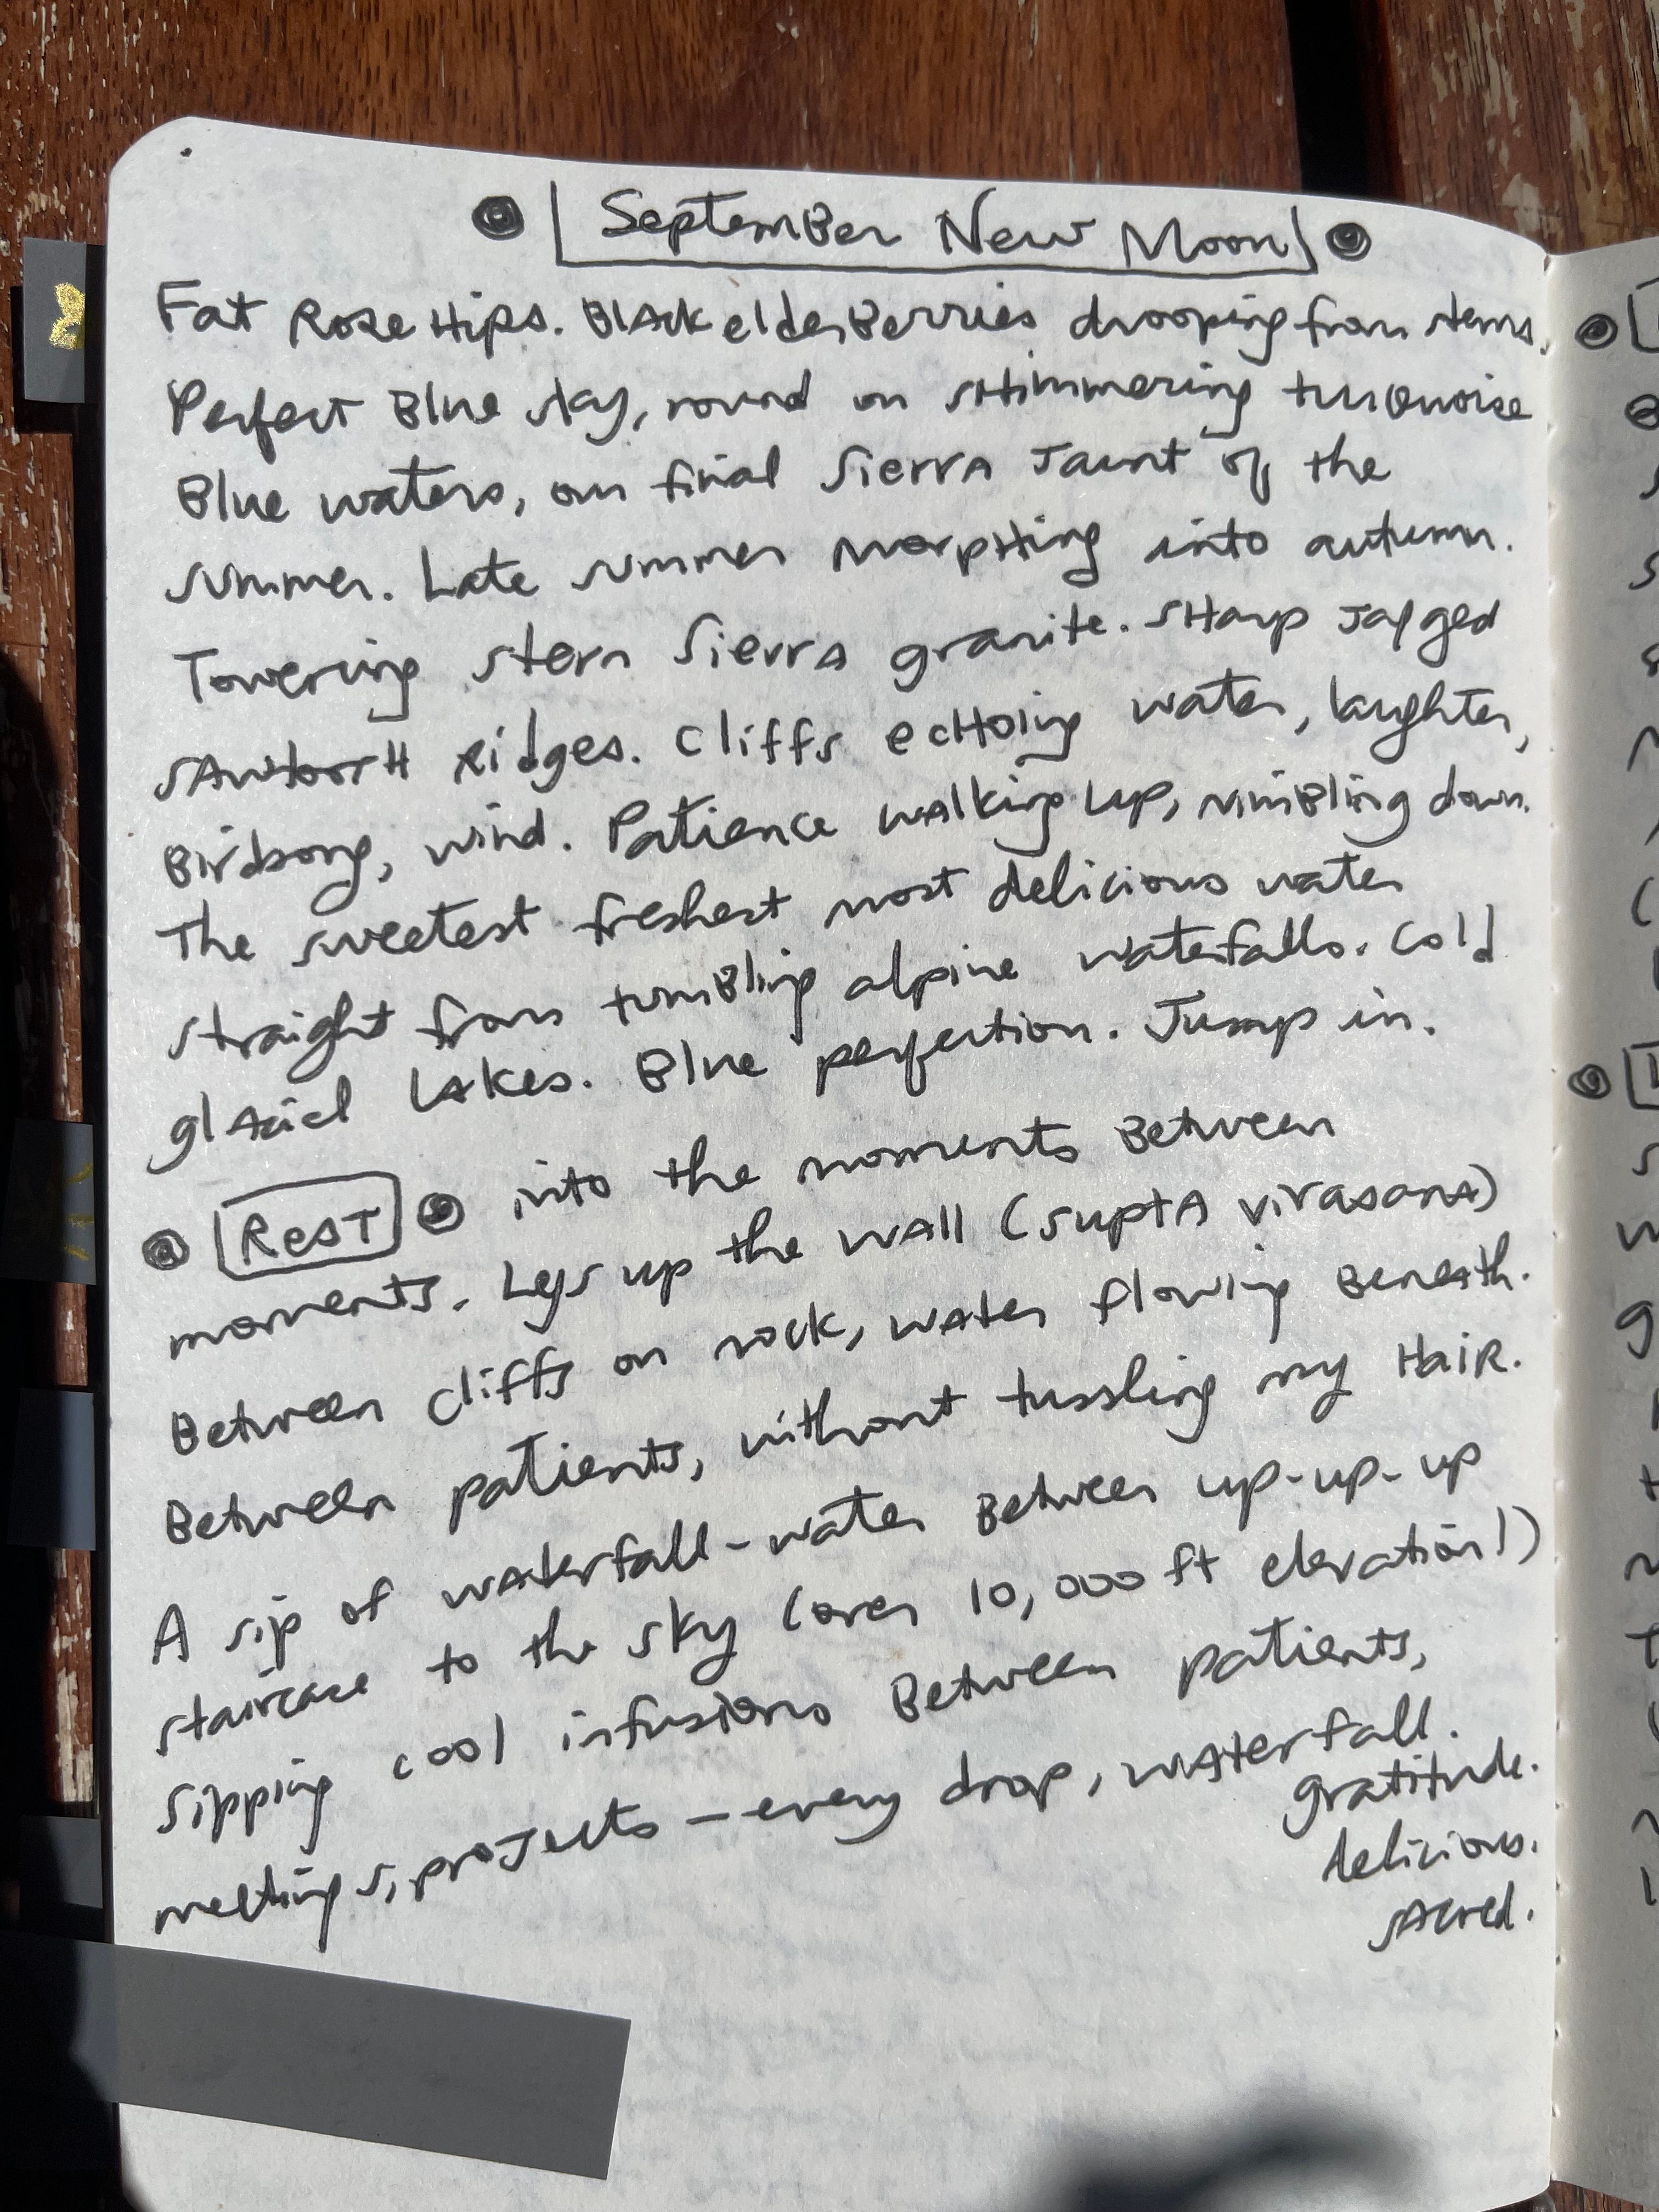 September New Moon
Fat Rose Hips. Black elderberries drooping from stems.
Perfect Blue sky, round on shimmering turquoise
Blue waters, our final Sierra Jaunt of the
summer. Late summer morphing into autumn.
Towering stern Sierra granite. Sharp Jagged
sawtooth ridges. Cliffs echoing water, laughter,
Birdsong, wind. Patience walking up, nimbling down.
The sweetest freshest most delicious water
straight from tumbling alpine waterfalls. Cold
glacial lakes. Blue perfection. Jump in.
Rest into the moments Between
moments. Legs up the wall (supta virasana)
Between cliffs on rock, water flowing Beneath.
Between patients, without tussling my Hair.
A sip of waterfall-water Between up-up-up
staircase to the sky (over 10,000 ft elevation!)
Sipping cool infusions Between patients,
meetings, projects — every drop, waterfall.
gratitude.
delicious.
sacred.